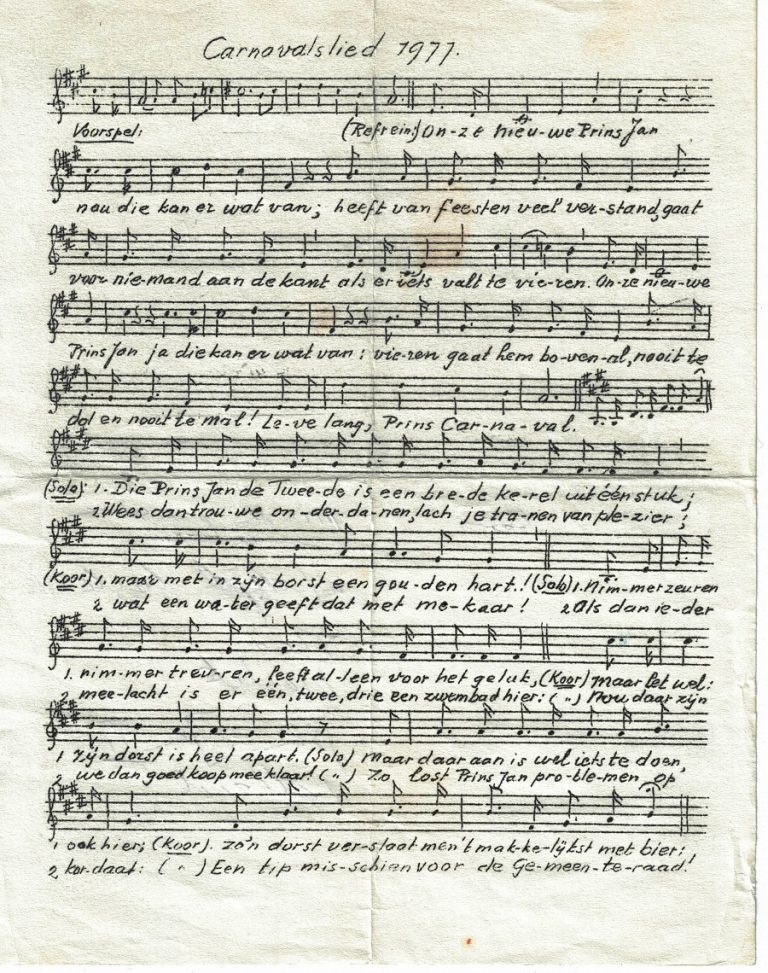 Carnavalslied 1977.
Voorspel: (Refrein:) On-ze nieu-we Prins Jan
nou die kan er wat van; heeft van feesten veel ver-stand, gaat
voor nie-mand aan de kant als er iets valt te vie-ren. On-ze nieu-we
Prins Jan ja die kan er wat van: vie-ren gaat hem bo-ven-al, nooit te
dol en nooit te mal! Le-ve lang, Prins Car-na-val.
(Solo) 1. Die Prins Jan de Twee-de is een bre-de ke-rel uit één stuk;
2 Wees dan trou-we on-der-da-nen, lach je tra-nen van ple-zier;
(Koor) 1. maar met in zijn borst een gou-den hart.! (Solo) 1. Nim-mer zeuren
2 wat een wa-ter geeft dat met me-kaar! 2 Als dan ie-der
1. nim-mer treu-ren, leeft al-leen voor het geluk, (Koor) maar let wel:
2 mee-lacht is er één, twee, drie een zwembad hier: („) Nou daar zijn
1 zijn dorst is heel apart. (Solo) Maar daar aan is wel iets te doen,
2 we dan goedkoop mee klaar! („) Zo lost Prins Jan pro-ble-men op
1 ook hier; (Koor). zo'n dorst ver-slaat men't mak-ke-lijkst met bier;
2 kor-daat: („) Een tip mis-schien voor de Ge-meen-te-raad!